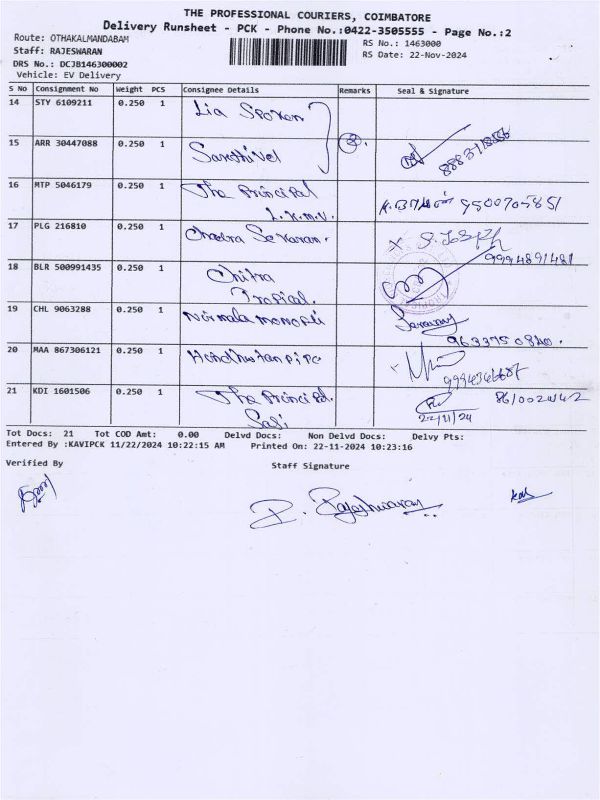 THE PROFESSIONAL COURIERS, COIMBATORE
Delivery Runsheet - PCK - Phone No.:0422-3505555 - Page No.:2
Route: OTHAKALMANDABAM
RS No.: 1463000
Staff: RAJESWARAN
RS Date: 22-Nov-2024
DRS No.: DCJB146300002
Vehicle: EV Delivery
S No Consignment No Weight PCS Consignee Details Remarks Seal & Signature
14 STY 6109211 0.250 1 Lia
15 ARR 30447088 0.250 1
16 MTP 5046179 0.250 1 The Principal
L.K.M.V. 9500705851
17 PLG 216810 0.250 1 Chandra Sekaran.
9994891481
18 BLR 500991435 0.250 1 Chitra
Tropical.
19 CHL 9063288 0.250 1 Nirmala
9633750840.
20 MAA 867306121 0.250 1
21 KDI 1601506 0.250 1 The Principal.
Sasi 22/11/24
Tot Docs: 21 Tot COD Amt: 0.00 Delvd Docs: Non Delvd Docs: Delvy Pts:
Entered By :KAVIPCK 11/22/2024 10:22:15 AM Printed On: 22-11-2024 10:23:16
Verified By Staff Signature